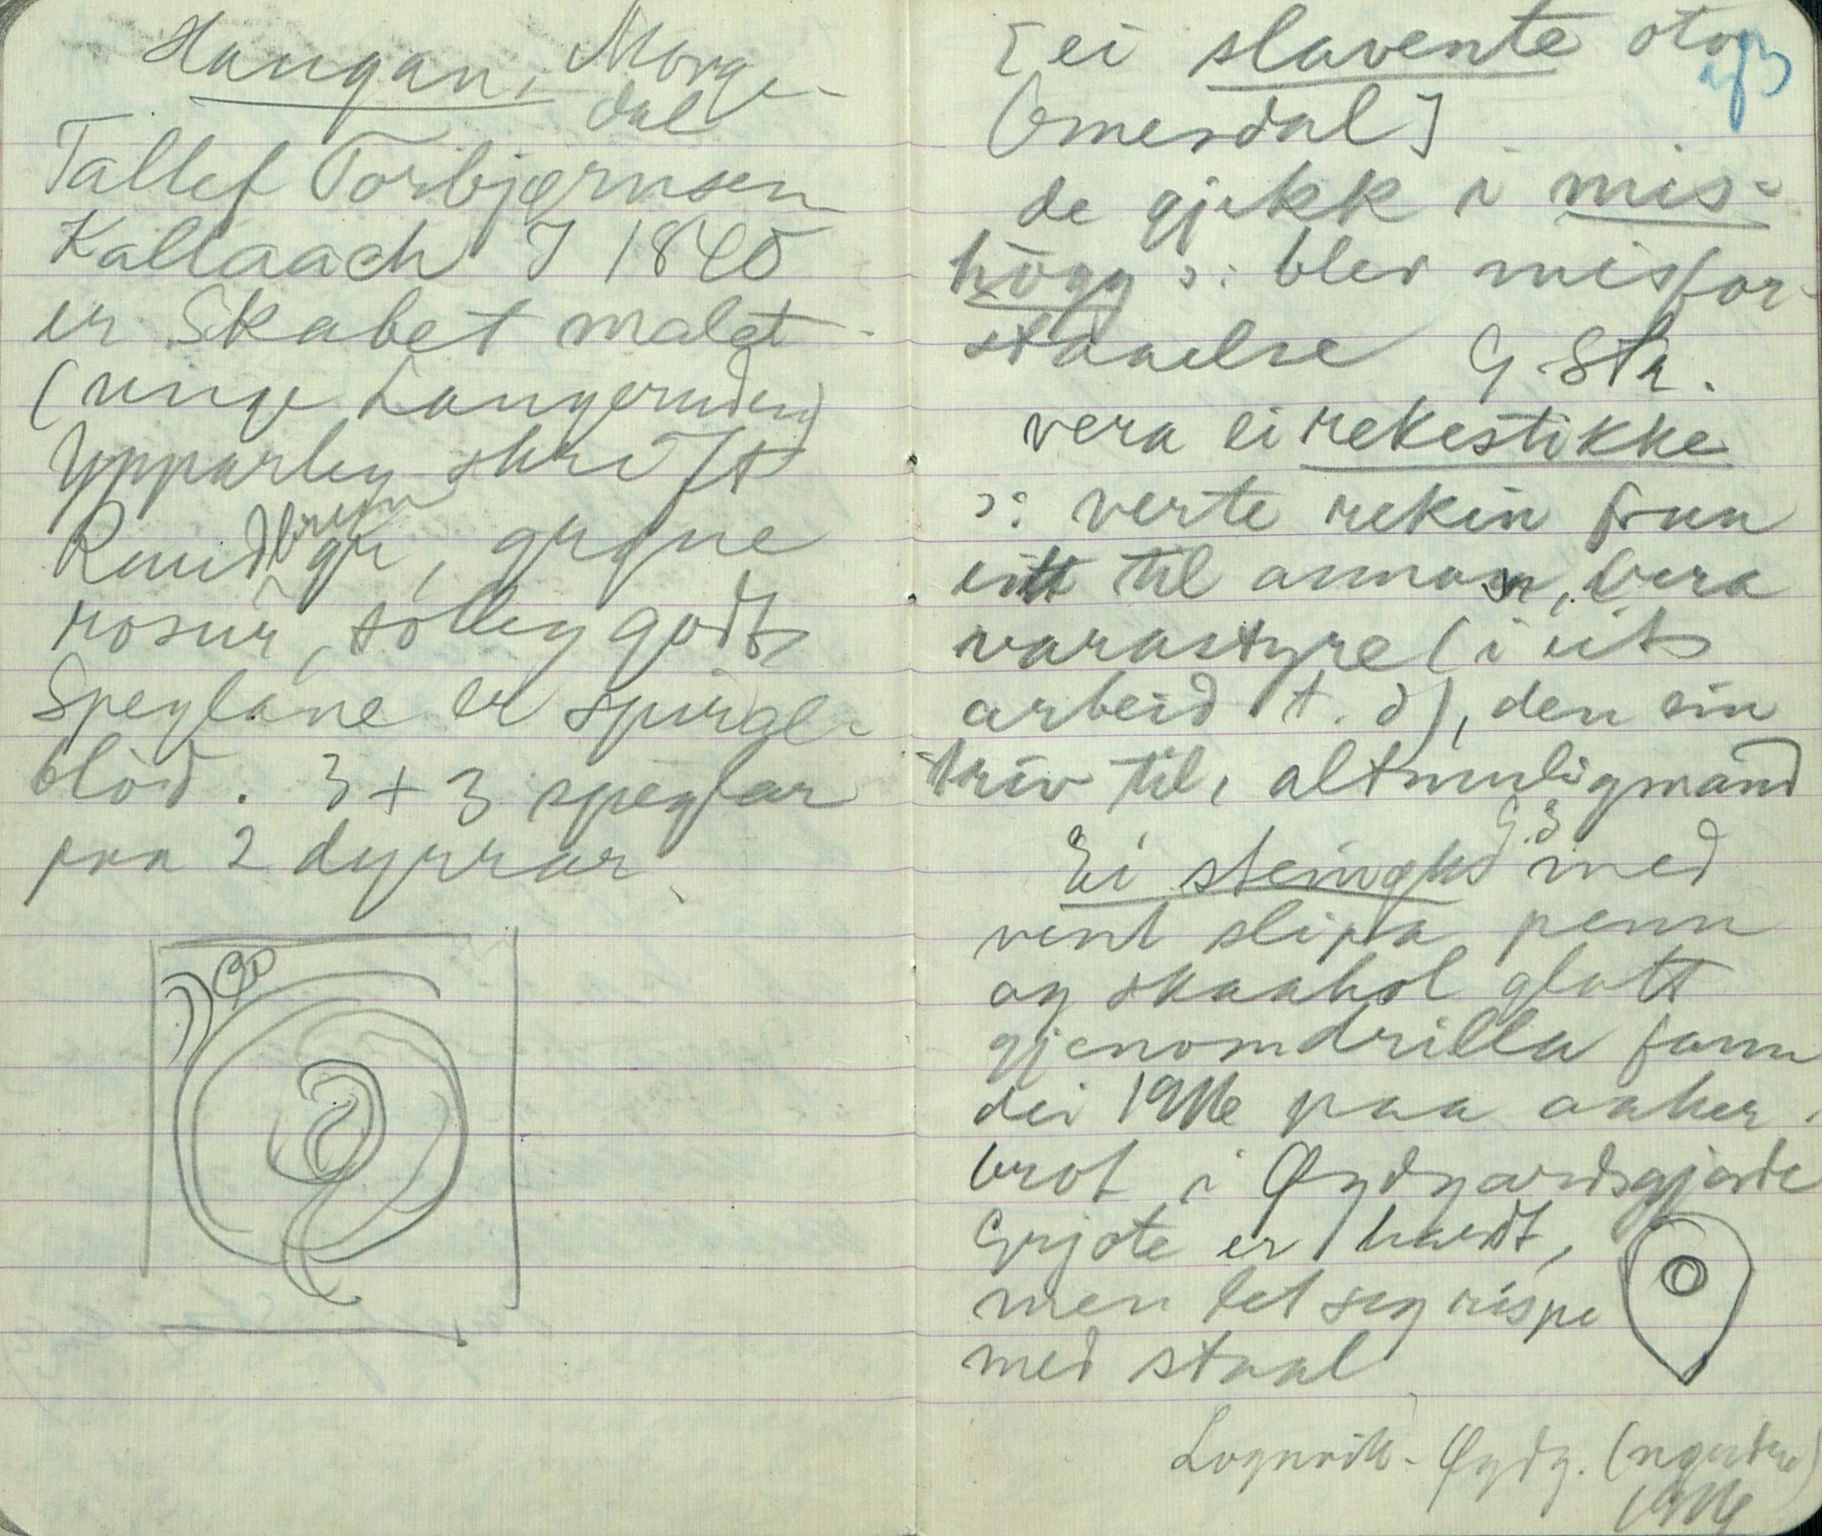 Haugan, Morge-
dal
Tallef Torbjørnsen
Kallaach I 1840
er Skabet malet
(unge Langeruden)
Ypparleg skrift
Raudbrun
gr, grøne
rosur, sølleg godt
Speglane er spiral-
blöd. 3 + 3 speglar
paa 2 dyrrar
[ei slavente oto
(Omesdal]
de gjekk i mis-
högg ɔ: blev misfor-
staaelse G. Str.
vera ei rekestikke
ɔ: verte rekin fraa
eitt til anna, vera
varastyre (i eit
arbeid t. d), den ein
triv til, altmuligmand
G. S
Ei steinøks med
vent slipa penn
og skaahol glatt
gjenomdrilla fann
dei 1916 paa aaker-
brot i Øydgardsgjorde
Grjote er hardt,
men let seg rispe
med staal
Lognvik - Øydg. (nyerdre)
1916